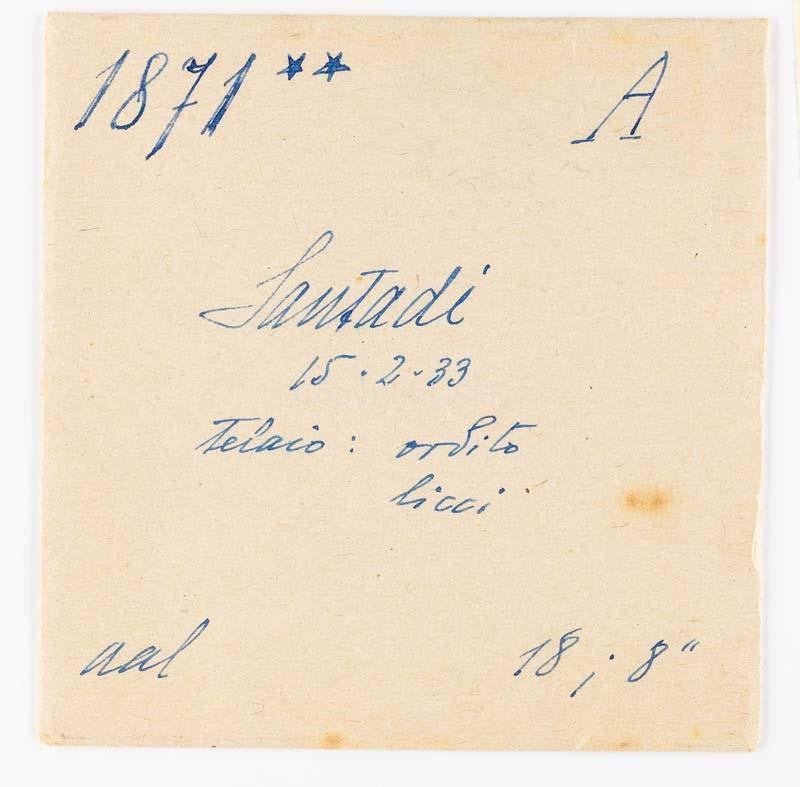 1871** A
Santadi
15.2.33
Telaio: ordito
licci
aal 18; 8"